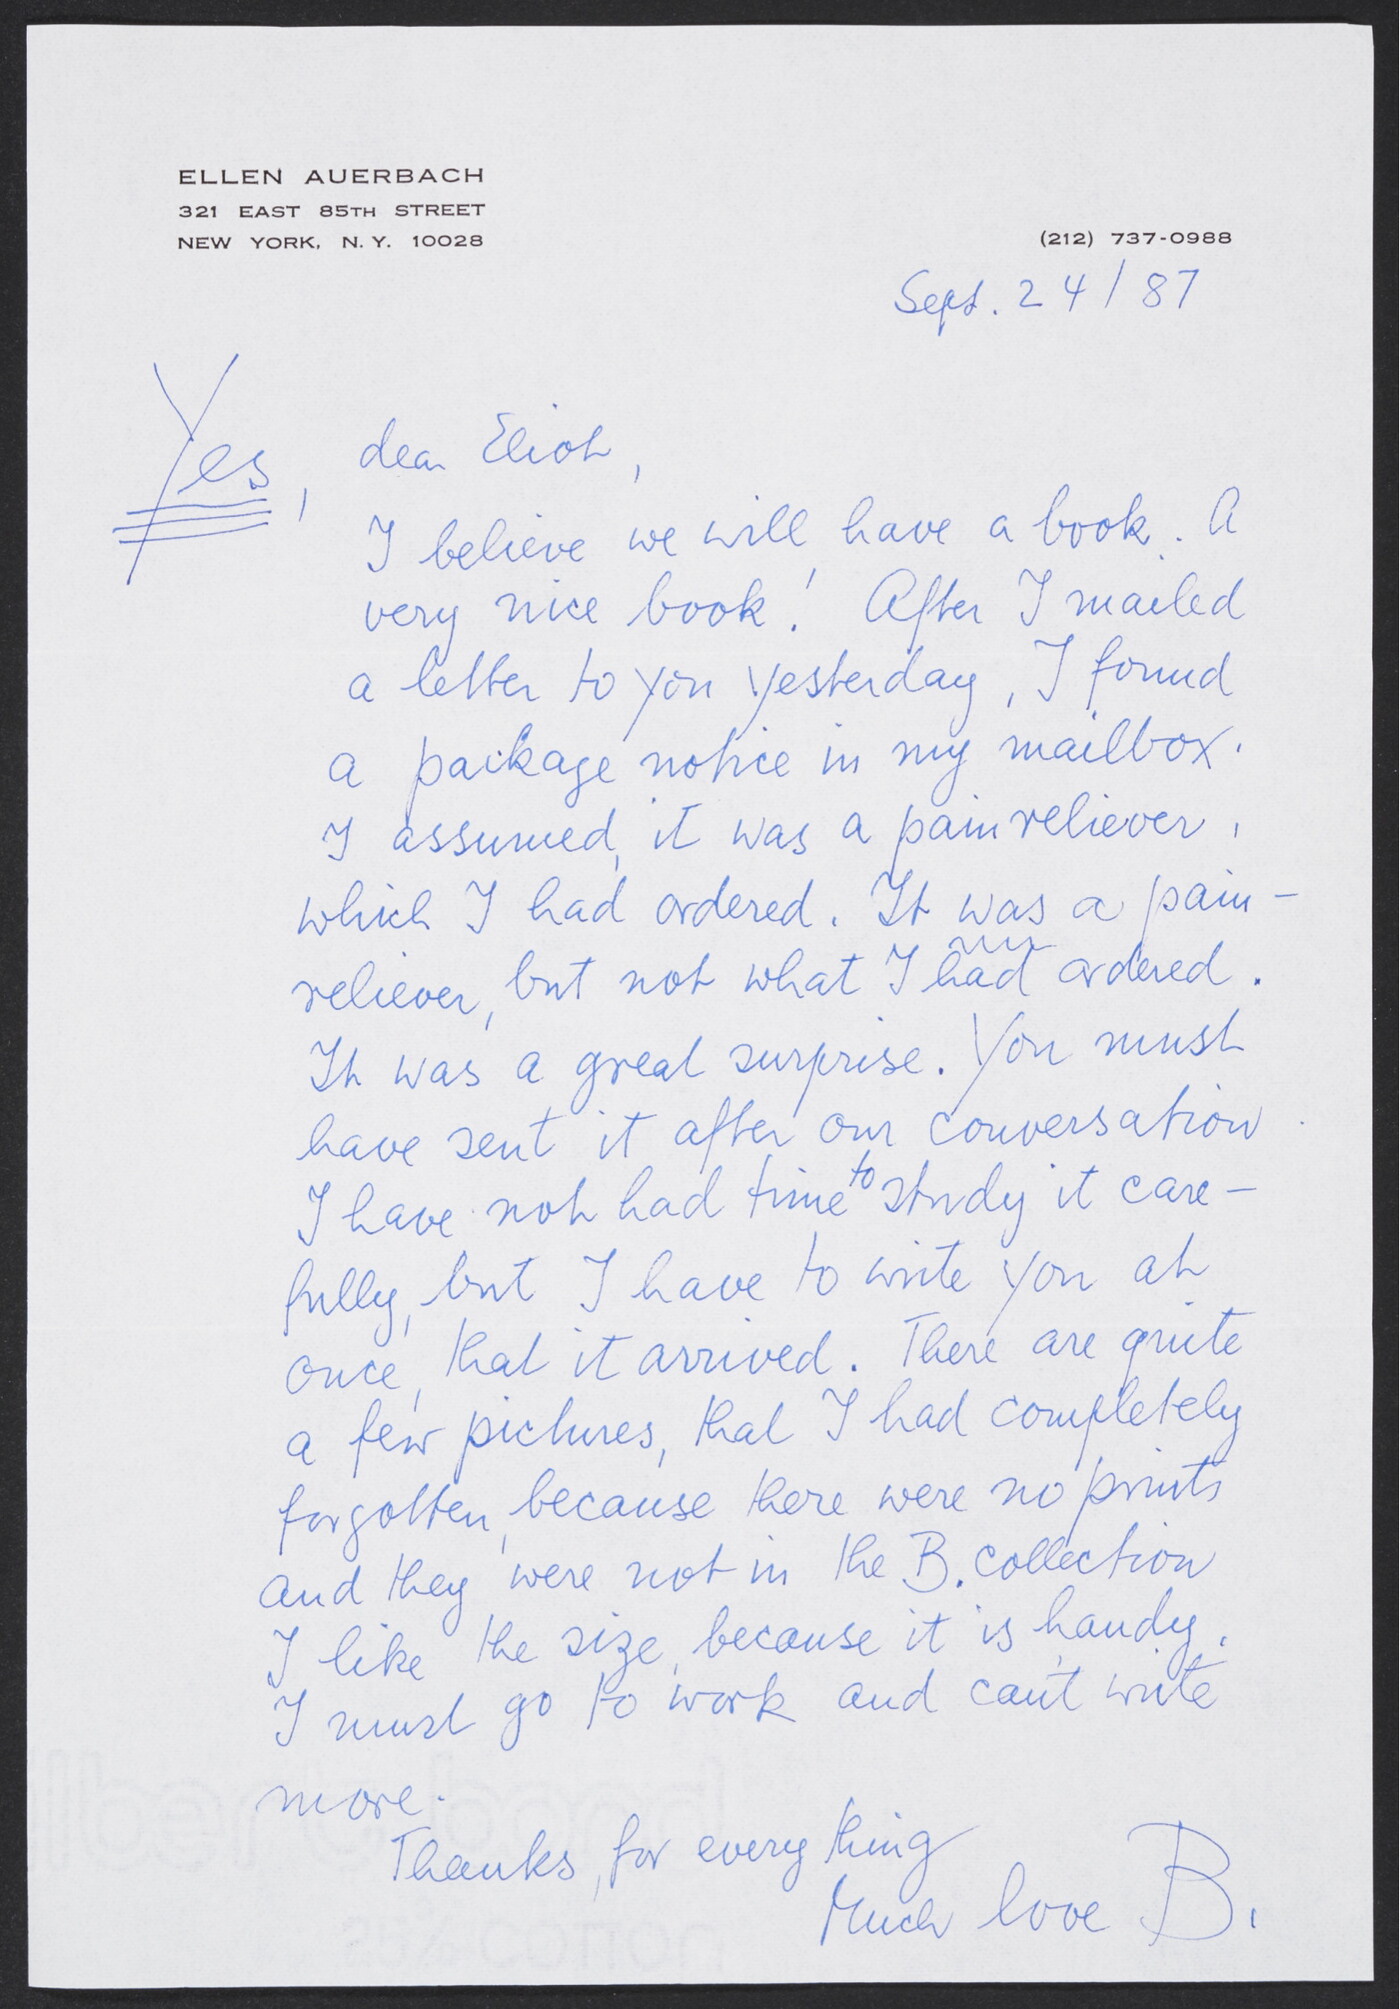 ELLEN AUERBACH
321 EAST 85TH STREET
NEW YORK, N.Y. 10028
(212) 737-0988
Sept. 24/87
Yes, dear Eliot,
I believe we will have a book. A
very nice book! After I mailed
a letter to you yesterday, I found
a package notice in my mailbox.
I assumed, it was a painreliever,
which I had ordered. It was a pain-
reliever, but not what I had ordered.
It was a great surprise. You must
have sent it after our conversation
I have not had time to study it care-
fully, but I have to write you at
once, that it arrived. There are quite
a few pictures, that I had completely
forgotten, because there were no prints
and they were not in the B. collection
I like the size, because it is handy.
I must go to work and can't write
more.
Thanks, for every thing
Much love B.